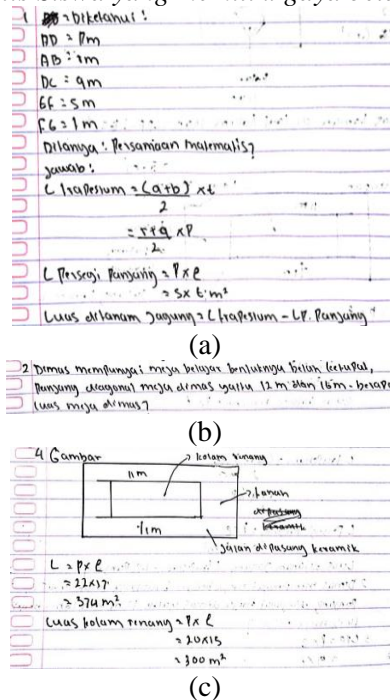 1 Diketahui :
AD = Pm
AB = rm
DC = qm
EF = 5m
FG = 1m
Ditanya : Persamaan matematis?
Jawab :
L trapesium = (a+b) xt
2
= r+q xP
2
L Persegi Panjang = P x l
= 5x t m²
Luas ditanam Jagung = L trapesium - L P. Panjang
(a)
2 Dimas mempunyai meja belajar bentuknya belah ketupat,
Panjang diagonal meja dimas yaitu 12 m dan 16m. berapa
luas meja dimas?
(b)
4 Gambar
kolam renang
11m
tanah
1m
jalan dipasang keramik
L = p x l
= 22x17
= 374 m²
Luas kolam renang = P x l
= 20x15
= 300 m²
(c)